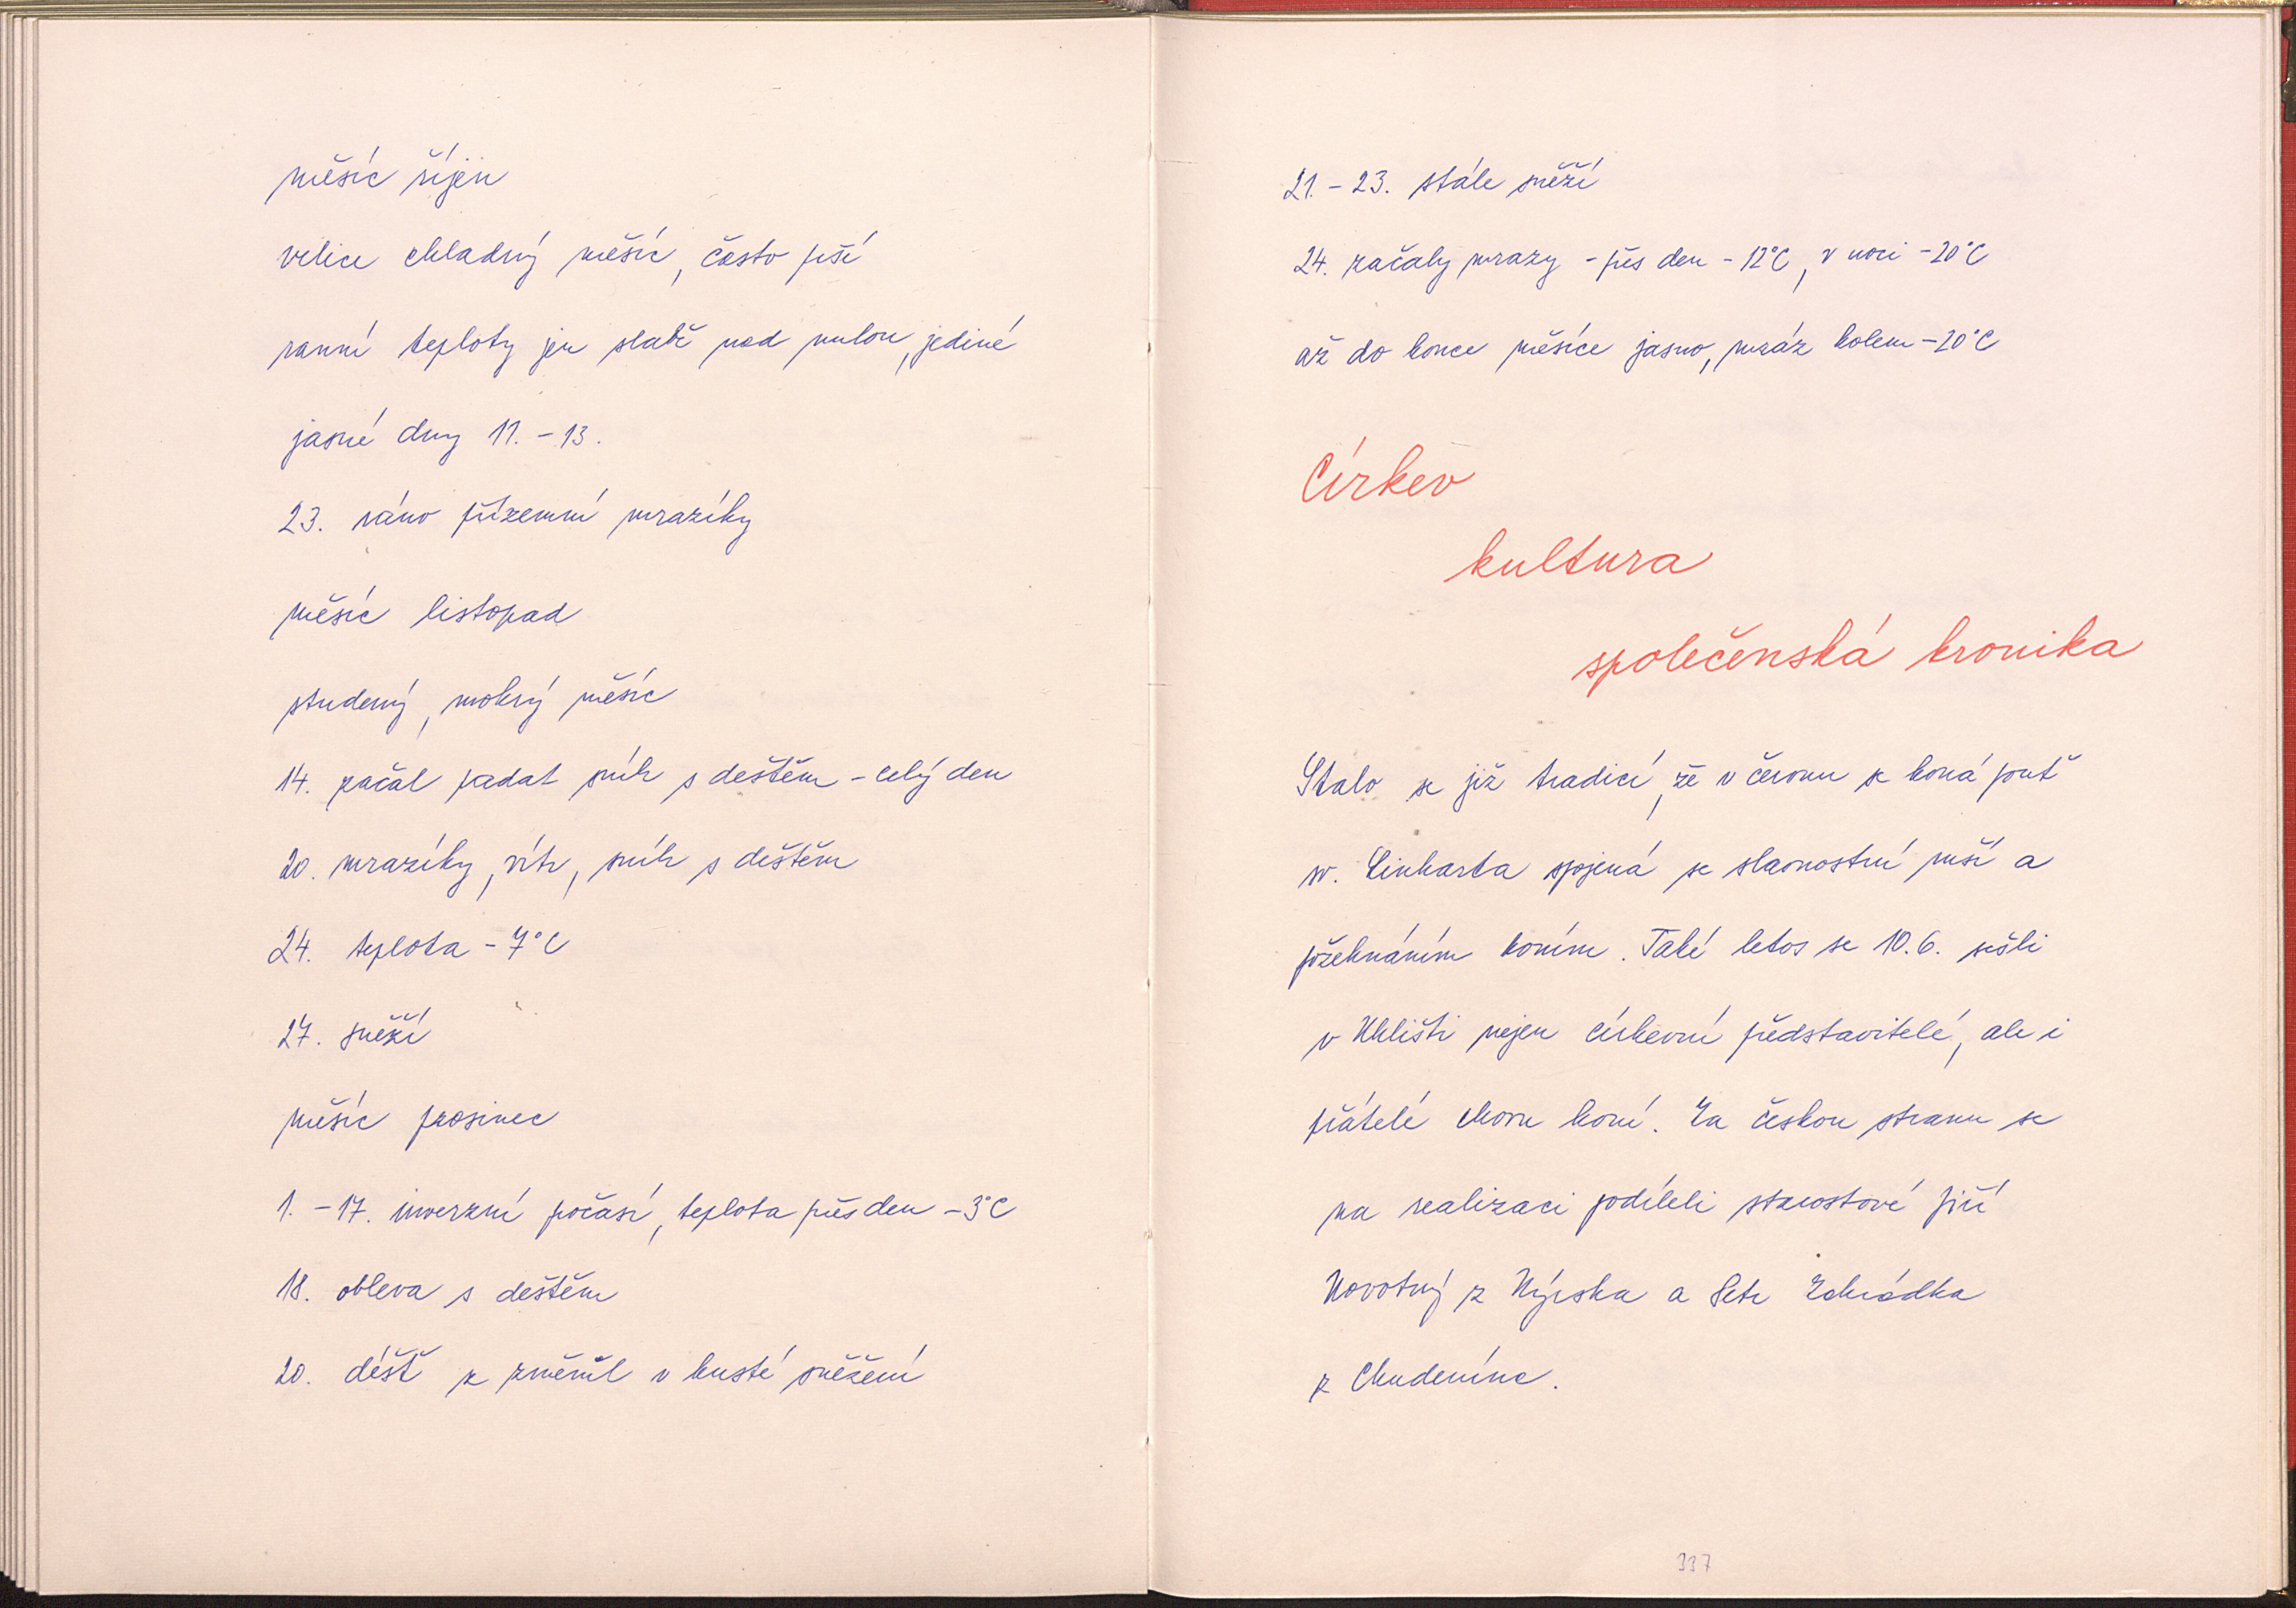 měsíc říjen
velice chladný měsíc, často prší
ranní teploty jen slabě nad nulou, jediné
jasné dny 11. - 13.
23. ráno přízemní mrazíky
měsíc listopad
studený, mokrý měsíc
14. začal padat sníh s deštěm - celý den
20. mrazíky, vítr, sníh s deštěm
24. teplota - 7°C
27. sněží
měsíc prosinec
1. - 17. inverzní počasí, teplota přes den - 3°C
18. obleva s deštěm
20. déšť se změnil v husté sněžení
21. - 23. stále sněží
24. začaly mrazy - přes den - 12°C, v noci - 20°C
až do konce měsíce jasno, mráz kolem - 20°C
Církev
kultura
společenská kronika
Stalo se již tradicí, že v červnu se koná pouť
sv. Linharta spojená se slavnostní mší a
požehnáním koním. Také letos se 10. 6. sešli
v Uhlišti nejen církevní představitelé, ale i
přátelé chovu koní. Za českou stranu se
na realizaci podíleli starostové Jiří
Novotný z Nýrska a Petr Zahrádka
z Chudenína.
337